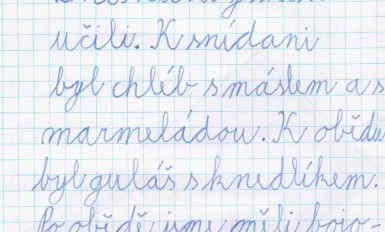 učili. K snídani
byl chléb s máslem a s
marmeládou. K obědu
byl guláš s knedlíkem.
Po obědě jsme měli bojo-